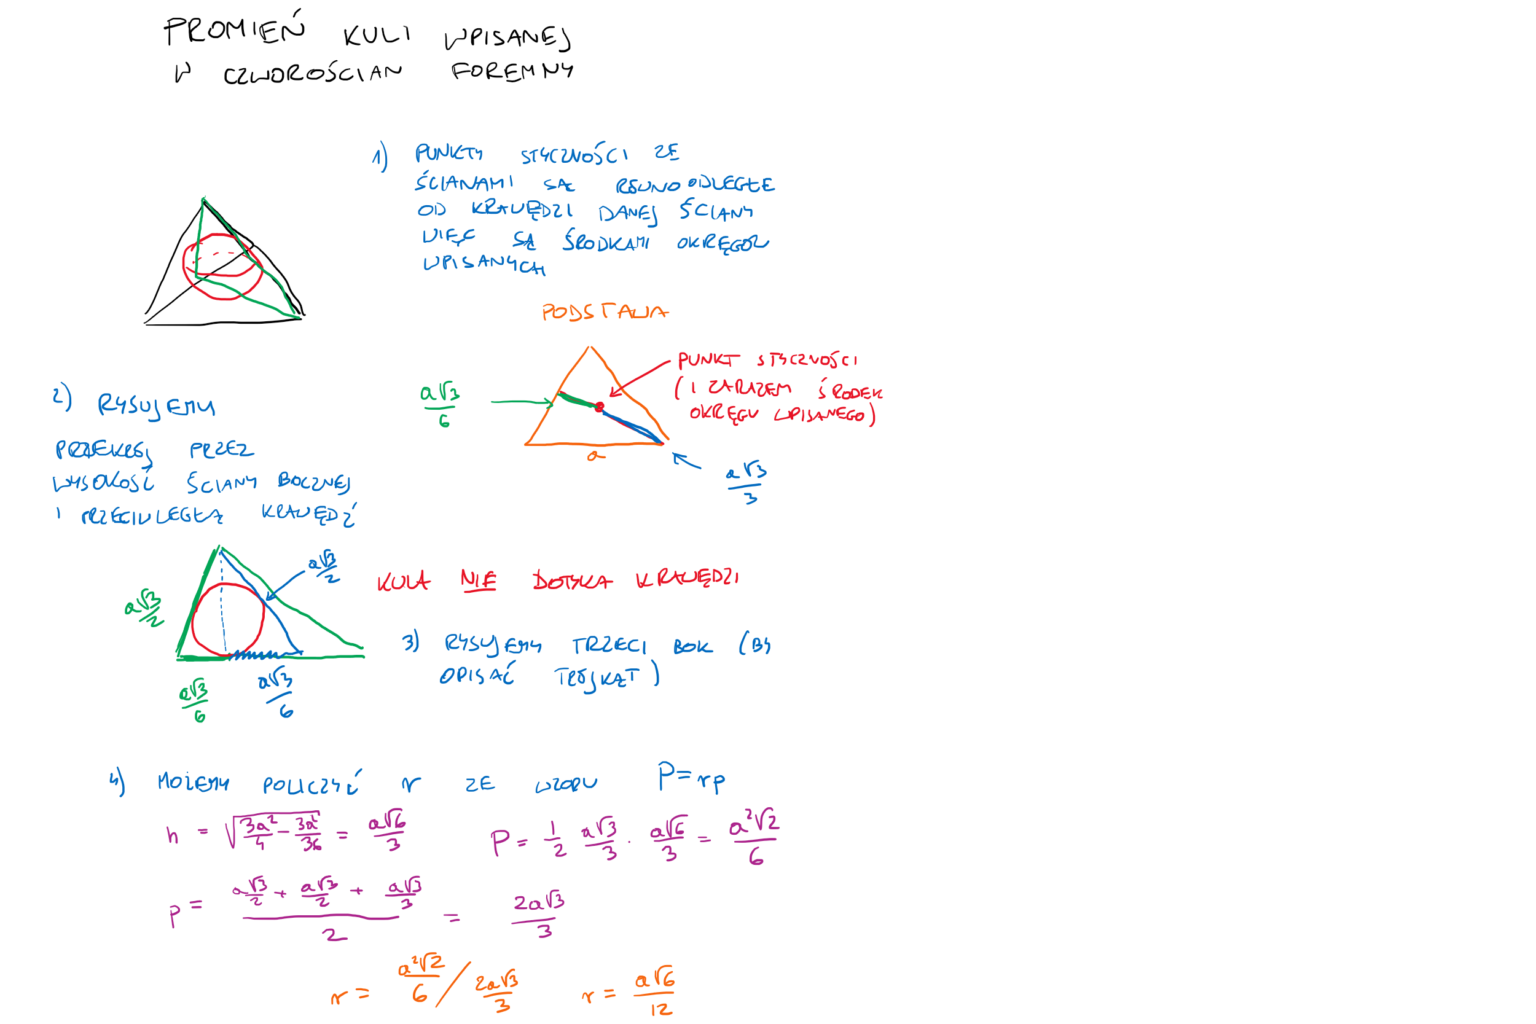 PROMIEŃ KULI WPISANEJ
W CZWOROŚCIAN FOREMNY
1) PUNKTY STYCZNOŚCI ZE
ŚCIANAMI SĄ RÓWNOODLEGŁE
OD KRAWĘDZI DANEJ ŚCIANY
WIĘC SĄ ŚRODKAMI OKRĘGÓW
WPISANYCH
PODSTAWA
a√3/6
PUNKT STYCZNOŚCI
(I ZARAZEM ŚRODEK
OKRĘGU WPISANEGO)
a
a√3/3
2) RYSUJEMY
PRZEKRÓJ PRZEZ
WYSOKOŚĆ ŚCIANY BOCZNEJ
I PRZECIWLEGŁĄ KRAWĘDŹ
a√3/2
a√3/2
a√3/6
a√3/6
KULA NIE DOTYKA KRAWĘDZI
3) RYSUJEMY TRZECI BOK (BY
OPISAĆ TRÓJKĄT)
4) MOŻEMY POLICZYĆ r ZE WZORU P=rp
h = √(3a²/4 - 3a²/36) = a√6/3
P = 1/2 a√3/3 · a√6/3 = a²√2/6
p = (a√3/2 + a√3/2 + a√3/3)/2 = 2a√3/3
r = a²√2/6 / 2a√3/3
r = a√6/12